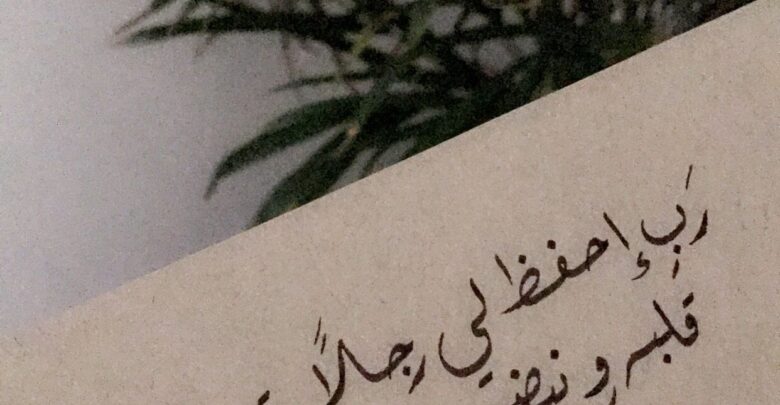 رَبِ إحفظ لي رجلاً
قلبه و